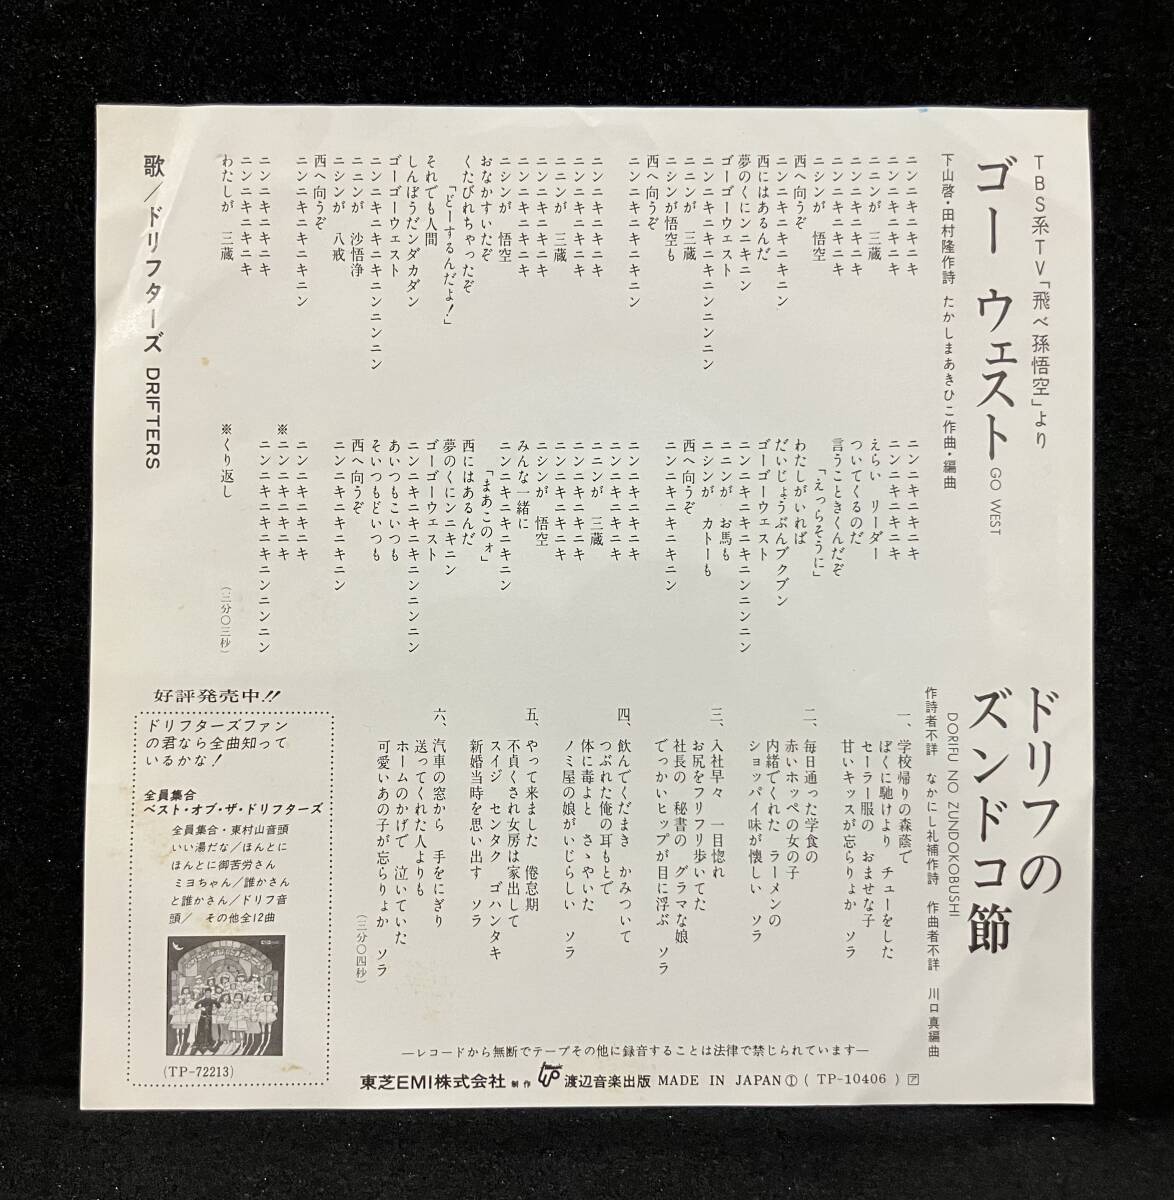 TBS系TV「飛べ孫悟空」より
ゴー ウェスト GO WEST
下山啓・田村隆作詩 たかしまあきひこ作曲・編曲
ニンニキニキニキ
ニンニキニキニキ
ニニンが 三蔵
ニンニキニキニキ
ニンニキニキニキ
ニシンが 悟空
西へ向うぞ
ニンニキニキニキニン
西にはあるんだ
夢のくにンニキニン
ゴーゴーウェスト
ニンニキニキニキニンニンニン
ニニンが 三蔵
ニシンが悟空も
西へ向うぞ
ニンニキニキニキニン
ニンニキニキニキ
ニンニキニキニキ
ニニンが 三蔵
ニンニキニキニキ
ニンニキニキニキ
ニシンが 悟空
おなかすいたぞ
くたびれちゃったぞ
「どーするんだよ!」
それでも人間
しんぼうだンダカダン
ゴーゴーウェスト
ニンニキニキニキニンニンニン
ニニンが 沙悟浄
ニシンが 八戒
西へ向うぞ
ニンニキニキニキニン
ニンニキニキニキ
ニンニキニキニキ
わたしが 三蔵
ニンニキニキニキ
ニンニキニキニキ
えらい リーダー
ついてくるのだ
言うこときくんだぞ
「えっらそうに」
わたしがいれば
だいじょうぶんブクブン
ゴーゴーウェスト
ニンニキニキニキニンニンニン
ニニンが お馬も
ニシンが カトーも
西へ向うぞ
ニンニキニキニキニン
ニンニキニキニキ
ニンニキニキニキ
ニニンが 三蔵
ニンニキニキニキ
ニンニキニキニキ
ニシンが 悟空
みんな一緒に
ニンニキニキニキニン
「まあこのォ」
西にはあるんだ
夢のくにンニキニン
ゴーゴーウェスト
ニンニキニキニキニンニンニン
あいつもこいつも
そいつもどいつも
西へ向うぞ
ニンニキニキニキニン
ニンニキニキニキ
※ニンニキニキニキ
ニンニキニキニキニンニンニン
※くり返し
(三分〇三秒)
歌/ドリフターズ DRIFTERS
ドリフの
ズンドコ節
DORIFU NO ZUNDOKOBUSHI
作詩者不詳 なかにし礼補作詩 作曲者不詳 川口真編曲
一、学校帰りの森蔭で
ぼくに馳けより チューをした
セーラー服の おませな子
甘いキッスが忘らりょか ソラ
二、毎日通った学食の
赤いホッペの女の子
内緒でくれた ラーメンの
ショッパイ味が懐しい ソラ
三、入社早々 一目惚れ
お尻をフリフリ歩いてた
社長の 秘書の グラマな娘
でっかいヒップが目に浮ぶ ソラ
四、飲んでくだまき かみついて
つぶれた俺の耳もとで
体に毒よと さゝやいた
ノミ屋の娘がいじらしい ソラ
五、やって来ました 倦怠期
不貞くされ女房は家出して
スイジ センタク ゴハンタキ
新婚当時を思い出す ソラ
六、汽車の窓から 手をにぎり
送ってくれた人よりも
ホームのかげで 泣いていた
可愛いあの子が忘らりょか ソラ
(三分〇四秒)
好評発売中!!
ドリフターズファン
の君なら全曲知って
いるかな!
全員集合
ベスト・オブ・ザ・ドリフターズ
全員集合・東村山音頭
いい湯だな/ほんとに
ほんとに御苦労さん
ミヨちゃん/誰かさん
と誰かさん/ドリフ音
頭/ その他全12曲
(TP-72213)
―レコードから無断でテープその他に録音することは法律で禁じられています―
東芝EMI株式会社 制作 渡辺音楽出版 MADE IN JAPAN ① ( TP-10406 ) ア